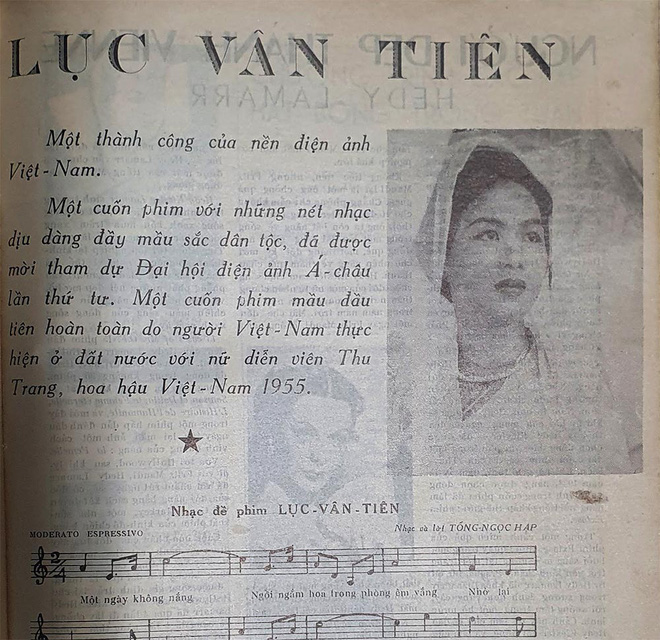 LỤC VÂN TIÊN
Một thành công của nền điện ảnh
Việt-Nam.
Một cuốn phim với những nét nhạc
dịu dàng đầy mầu sắc dân tộc, đã được
mời tham dự Đại hội điện ảnh Á-châu
lần thứ tư. Một cuốn phim mầu đầu
tiên hoàn toàn do người Việt-Nam thực
hiện ở đất nước với nữ diễn viên Thu
Trang, hoa hậu Việt-Nam 1955.
Nhạc đề phim LỤC-VÂN-TIÊN
MODERATO ESPRESSIVO
Nhạc và lời TÔNG-NGỌC HẠP
2/4
Một ngày không nắng
Ngồi ngắm hoa trong phòng êm vắng
Nhờ lại